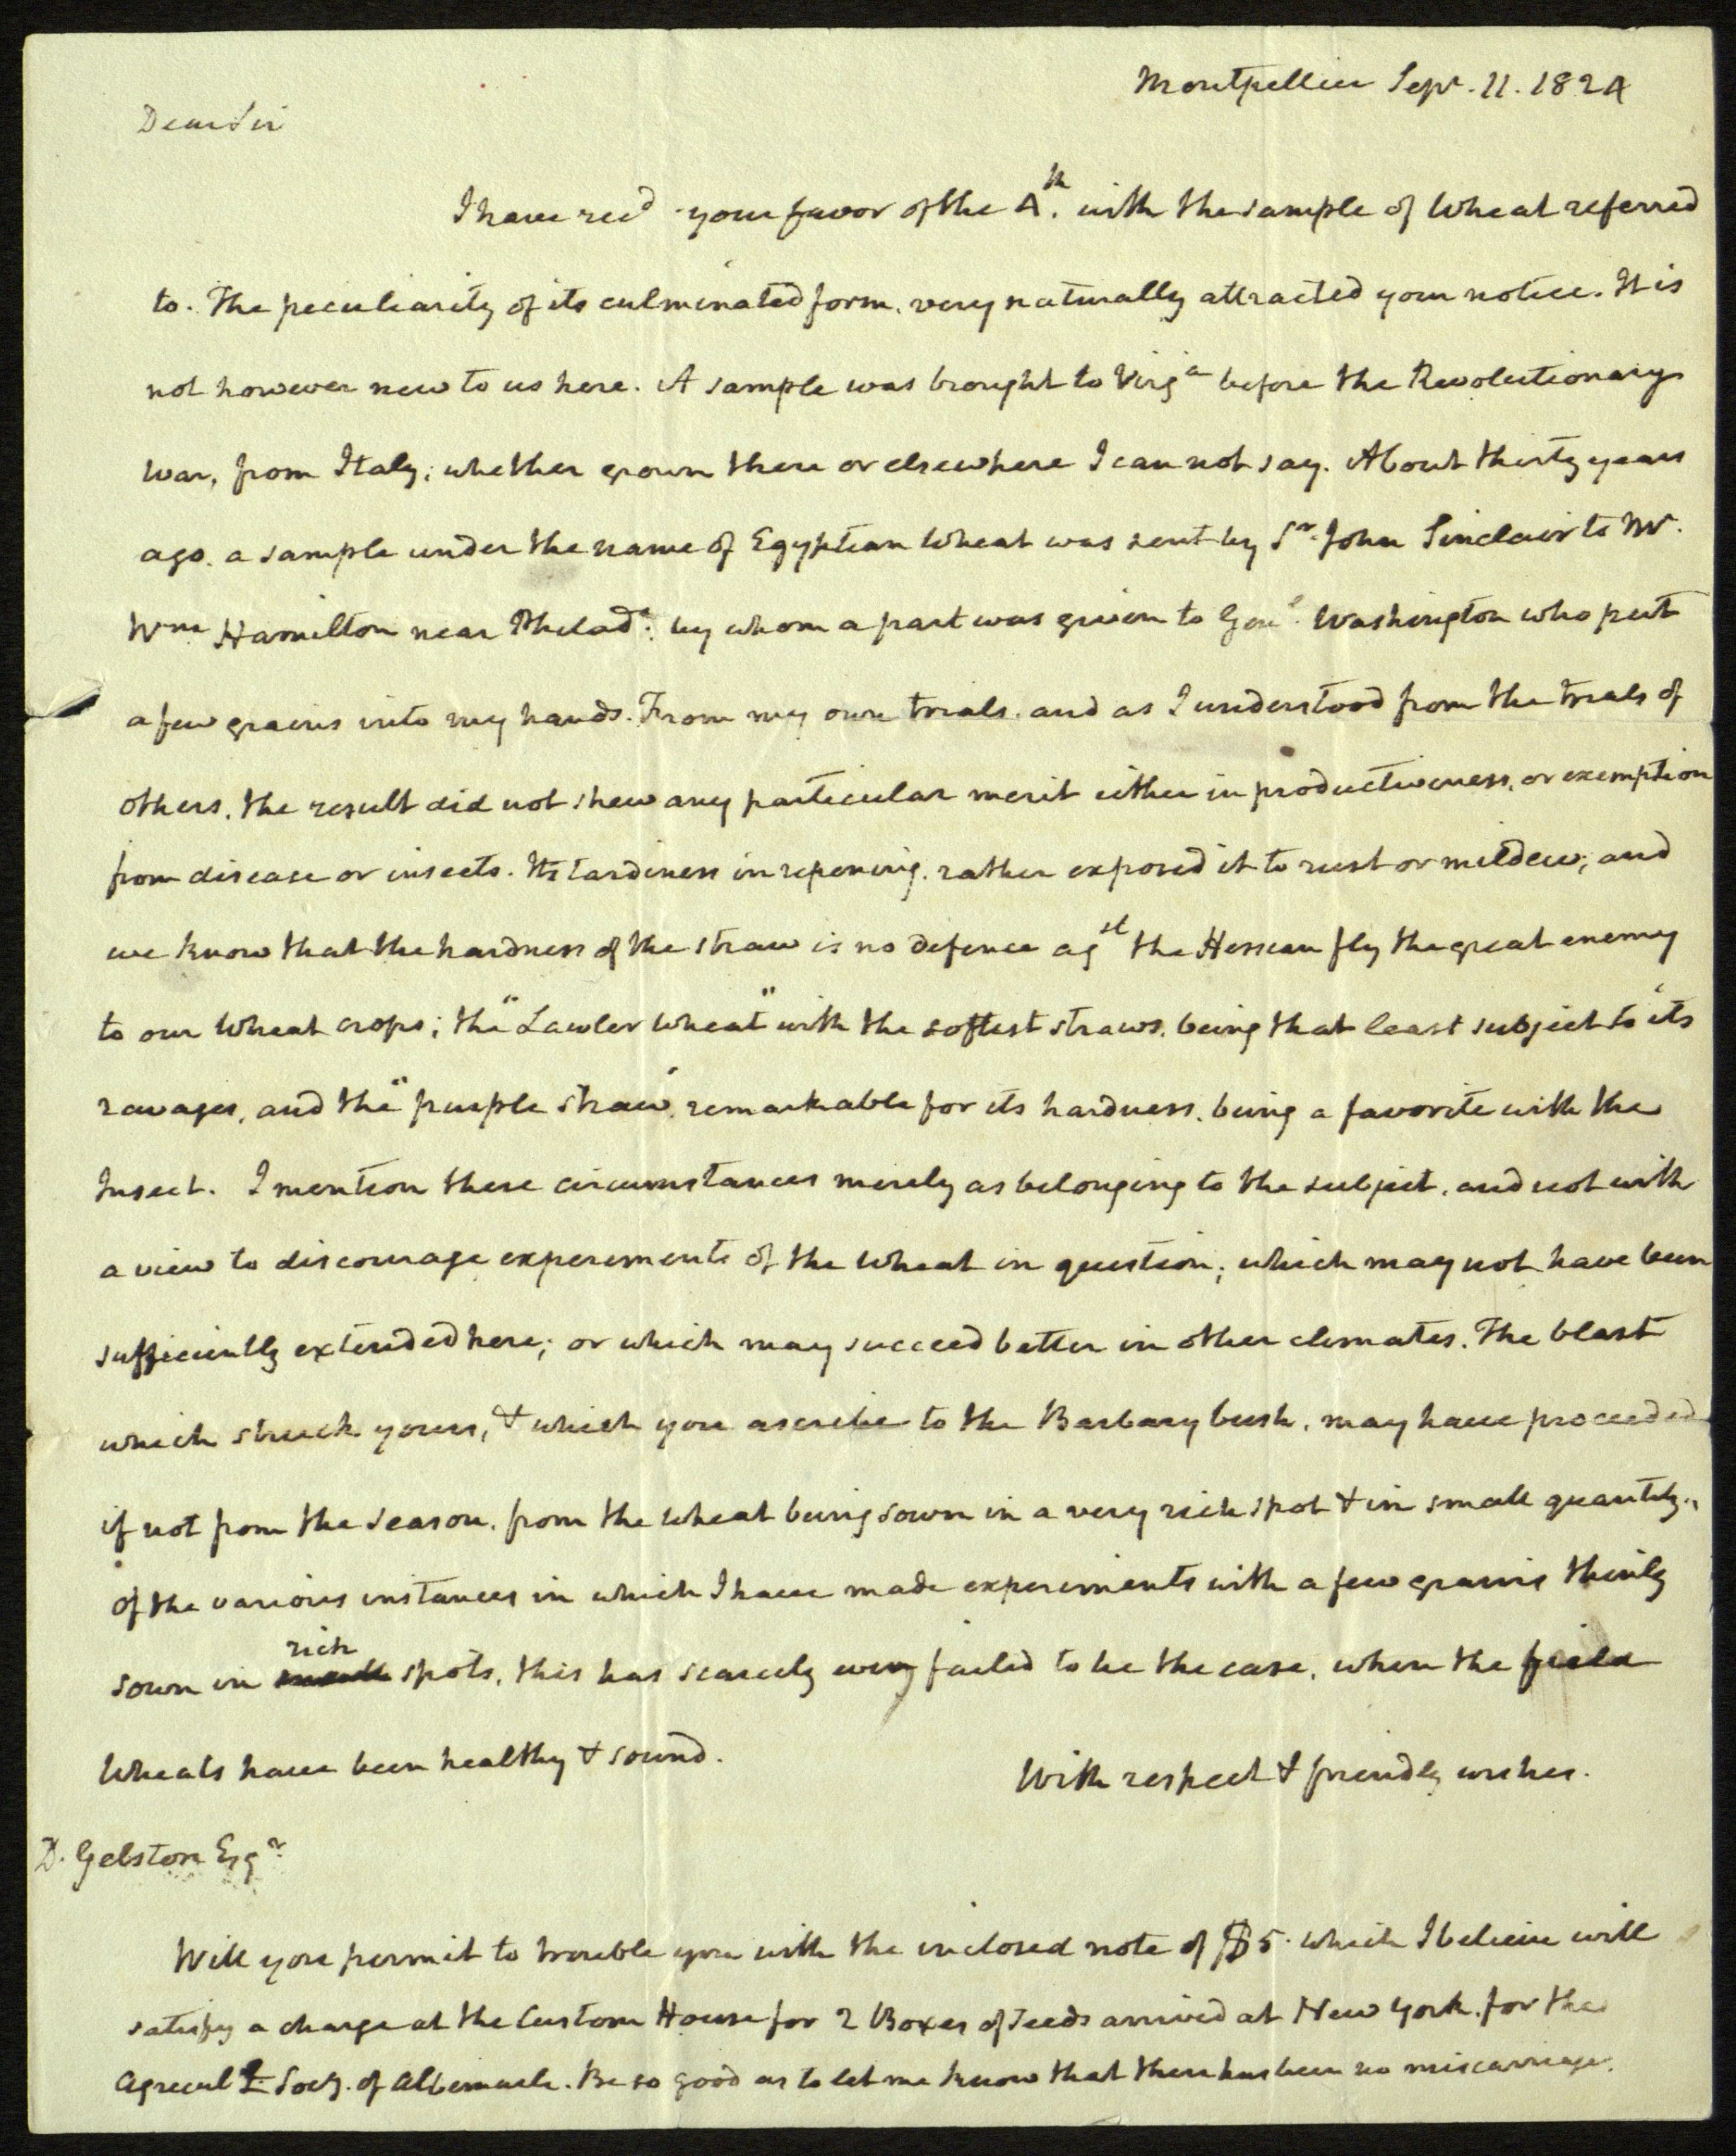 Montpellier Sepr. 11. 1824
Dear Sir
I have recd your favor of the 4th. with the sample of Wheat referred
to. The peculiarity of its culminated form, very naturally attracted your notice. It is
not however new to us here. A sample was brought to Virga before the Revolutionary
War, from Italy; whether grown there or elsewhere I can not say. About thirty years
ago. a sample under the name of Egyptian Wheat was sent by Sr. John Sinclair to Mr.
Wm Hamilton near Philada: by whom a part was given to Genl. Washington who put
a few grains into my hands. From my own trials. and as I understood from the trials of
others, the result did not shew any particular merit either in productiveness, or exemption
from disease or insects. Its tardiness in ripening, rather exposed it to rust or mildew; and
we know that the hardness of the straw is no defence agst the Hessian fly the great enemy
to our Wheat crops; the "Lawler wheat" with the softest straws, being that least subject to its
ravages, and the "purple straw" remarkable for its hardness, being a favorite with the
Insect. I mention these circumstances merely as belonging to the subject, and not with
a view to discourage experiments of the Wheat in question; which may not have been
sufficiently extended here; or which may succeed better in other climates. The blast
which struck yours, & which you ascribe to the Barbary bush, may have proceeded
if not from the season, from the wheat being sown in a very rich spot & in small quantity.
Of the various instances in which I have made experiments with a few grains thinly
rich
sown in small spots, this has scarcely ever failed to be the case, when the field
Wheats have been healthy & sound.
With respect & friendly wishes.
D. Gelston Esqr.
Will you permit to trouble you with the inclosed note of $5. which I believe will
satisfy a charge at the Custom House for 2 Boxes of seeds arrived at New York for the
Agricull Socy. of Albemarle. Be so good as to let me know that there has been no miscarriage.